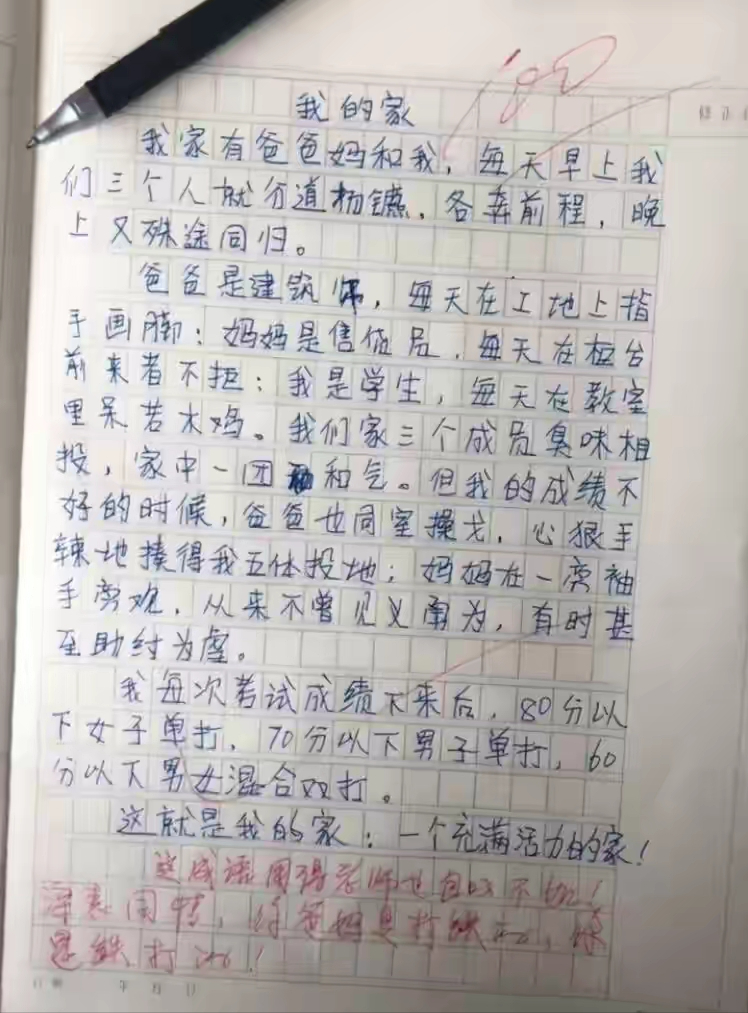 100
修正
我的家
我家有爸爸妈和我，每天早上我
们三个人就分道杨镳，各奔前程，晚
上又殊途同归。
爸爸是建筑师，每天在工地上指
手画脚；妈妈是售货员，每天在柜台
前来者不拒；我是学生，每天在教室
里呆若木鸡。我们家三个成员臭味相
投，家中一团和气。但我的成绩不
好的时候，爸爸也同室操戈，心狠手
辣地揍得我五体投地；妈妈在一旁袖
手旁观，从来不曾见义勇为，有时甚
至助纣为虐。
我每次考试成绩下来后，80分以
下女子单打，70分以下男子单打，60
分以下男女混合双打。
这就是我的家：一个充满活力的家！
这成语用得老师也自叹不如！
你爸妈是打铁的，你
是铁打的！
年 月 日